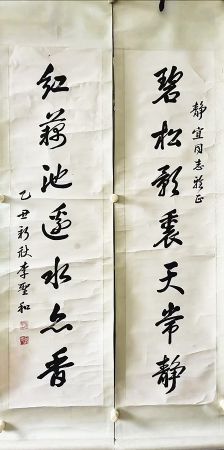 静宜同志雅正
碧松影裏天常静
红藕池边水亦香
乙丑新秋李圣和